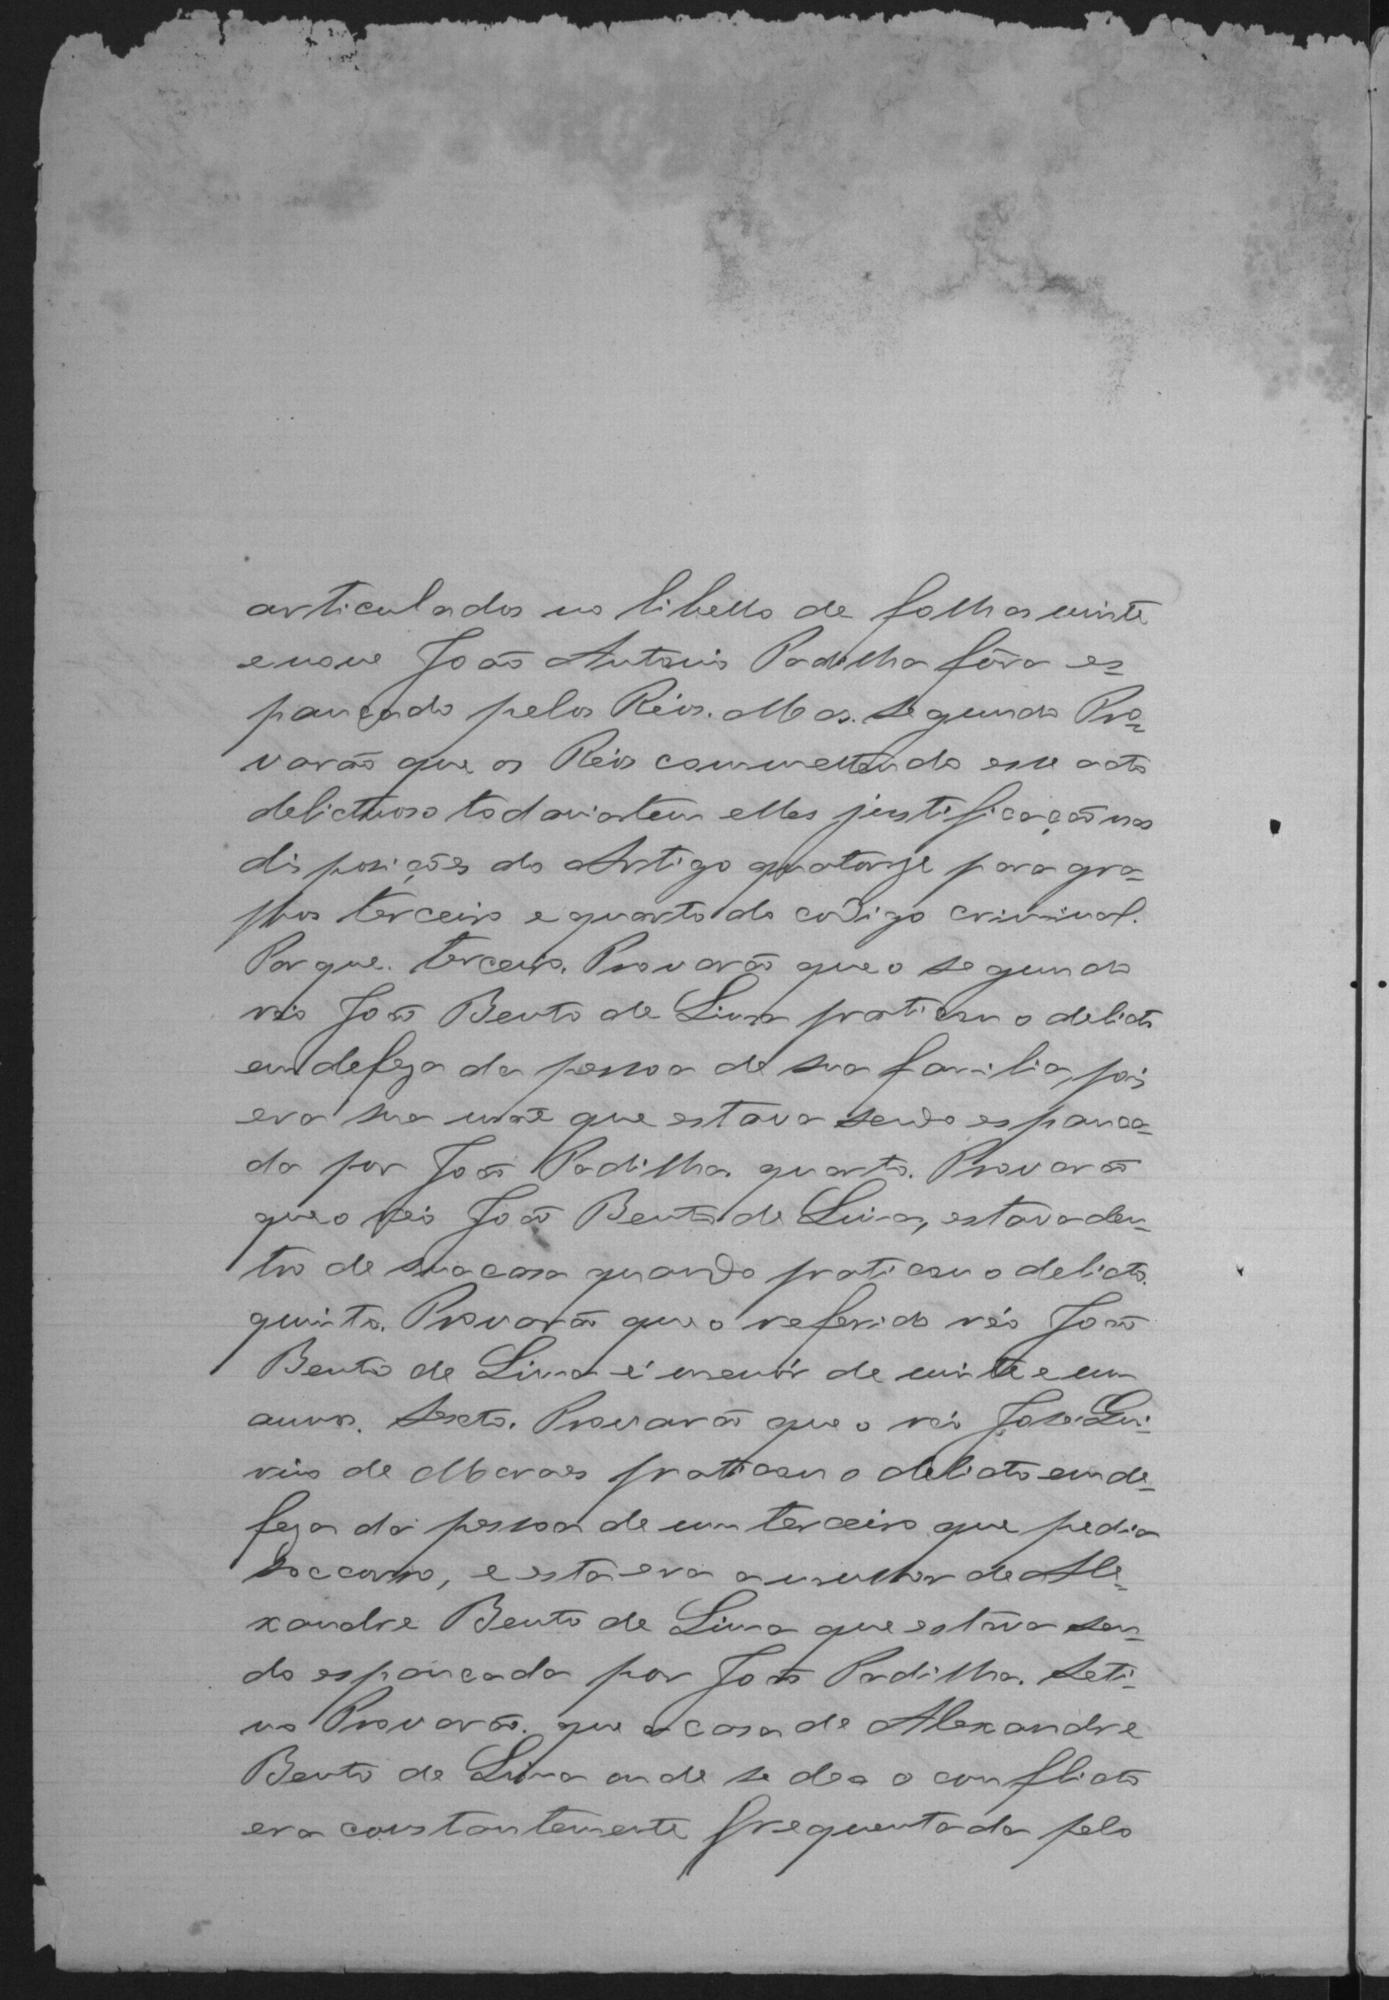 articulados no libello de folhas vinte
e nove João Antonio Padilha fôra es-
pancado pelos Réos. Mas. Segundo Pro-
varão que os Réos commettendo esse acto
delictuoso todavia tem elles justificação nas
disposições do Artigo quatorze paragra-
phos terceiro e quarto do codigo criminal.
Porque. terceiro. Provarão que o segundo
réo João Bento de Lima praticou o delicto
em defeza da pessoa de sua familia, pois
era sua mãe que estava sendo espanca-
da por João Padilha. quarto. Provarão
que o réo João Bento de Lima, estava den-
tro de sua casa quando praticou o delicto.
quinto. Provarão que o referido réo João
Bento de Lima é menór de vinte e um
annos. Sexto. Provarão que o réo José Qui-
rino de Moraes praticou o delicto em de-
feza da pessoa de um terceiro que pedia
soccorro, e esta era a mulher de Ale-
xandre Bento de Lima que estava sen-
do espancada por João Padilha. Seti-
mo Provarão. que a casa de Alexandre
Bento de Lima onde se deo o conflicto
era constantemente frequentada pelo